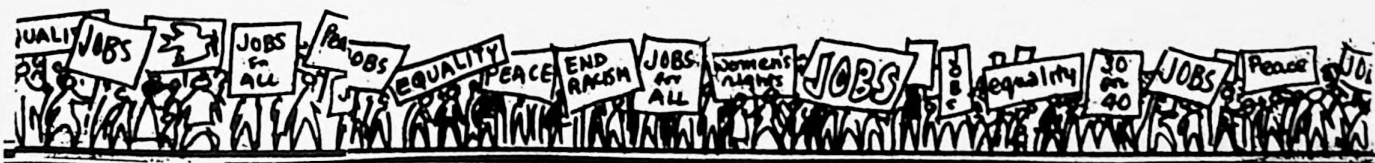 JOBS
JOBS
for
ALL
OBS
EQUALITY
PEACE
END
RACISM
JOBS
for
ALL
women's
rights
JOBS
JOBS
equality
30
for
40
JOBS
Peace